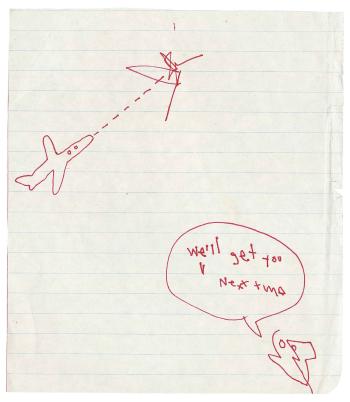 we'll get you
next tme